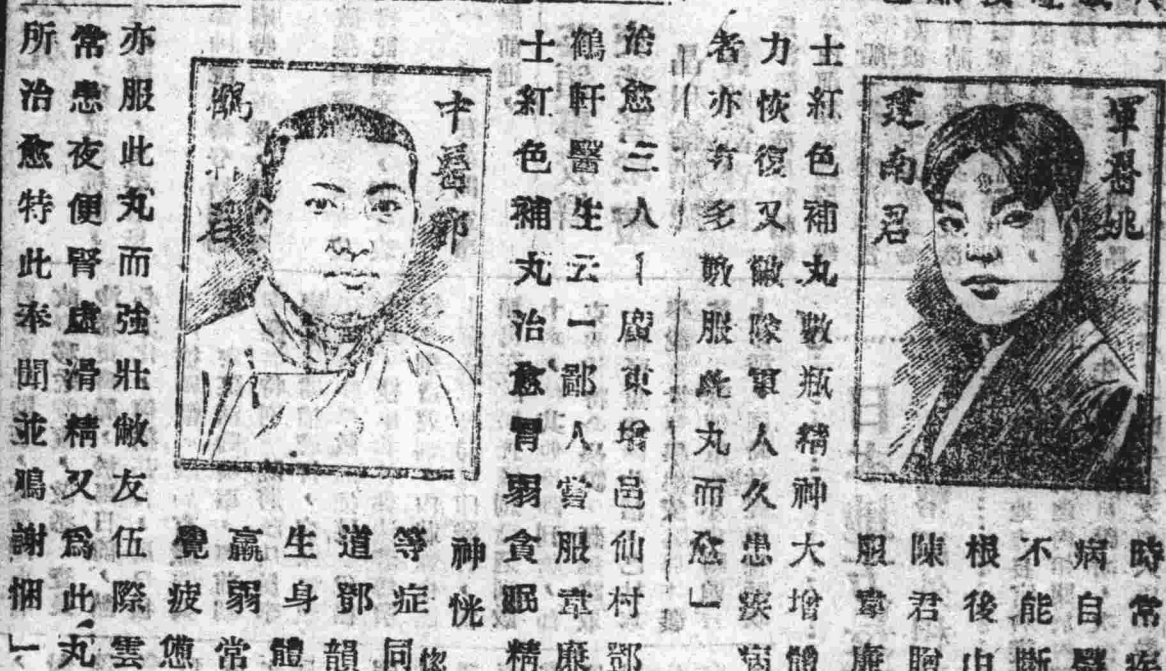 軍醫姚
建南君
時常
病自
不能斷
根後由
陳君
服韋廉
士紅色補丸數瓶精神大增體
力恢復又敝隊軍人久患疾病
者亦有多數服此丸而愈」
治愈三人「廣東增邑仙村鄧
鶴軒醫生云一鄙人嘗服韋廉
士紅色補丸治愈腎弱貪眠精
神恍惚
等症同
道鄧韻
生身體
羸弱常
覺疲憊
中醫鄧
鶴軒君
亦服此丸而強壯敝友伍際雲
常患夜便腎虛滑精又爲此丸
所治愈特此奉聞並鳴謝悃」